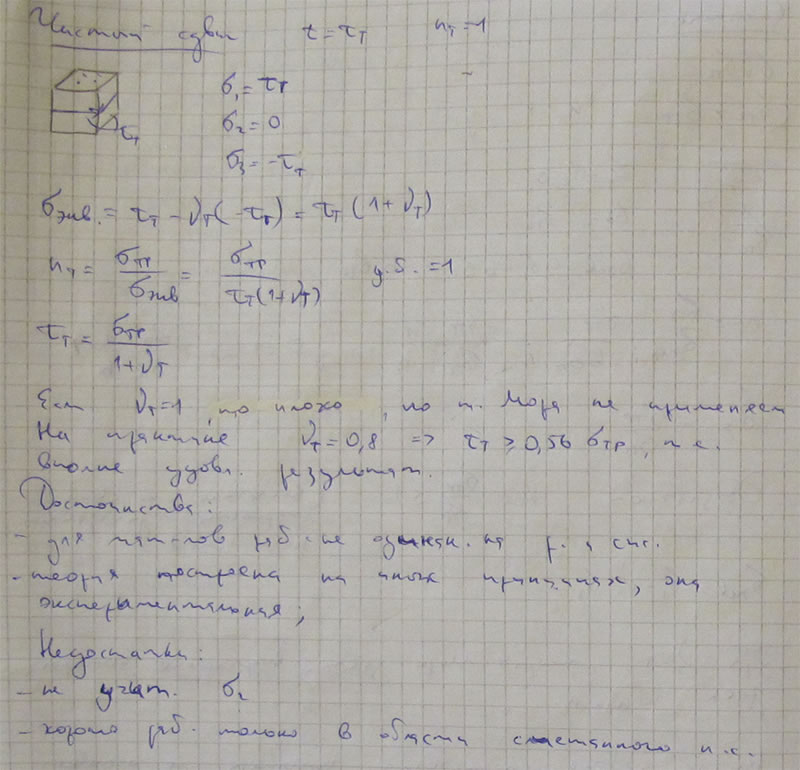 Чистый сдвиг τ = τт nт = 1
σ₁ = τт
σ₂ = 0
σ₃ = -τт
τт
σэкв. = τт - νт(-τт) = τт (1 + νт)
nт = σтр / σэкв = σтр / τт(1+νт) д.б. = 1
τт = σтр / 1+νт
Если νт=1, то плохо, но т. Мора не применяем
На практике νт = 0,8 => τт ≥ 0,56 σтр, т.е.
вполне удовл. результат.
Достоинства:
- для мат-лов раб-ие одинак. на р. и сж.
- теория построена на иных принципах, она
экспериментальная;
Недостатки:
- не учит. σ₂
- хорошо раб. только в области смешанного н.с.